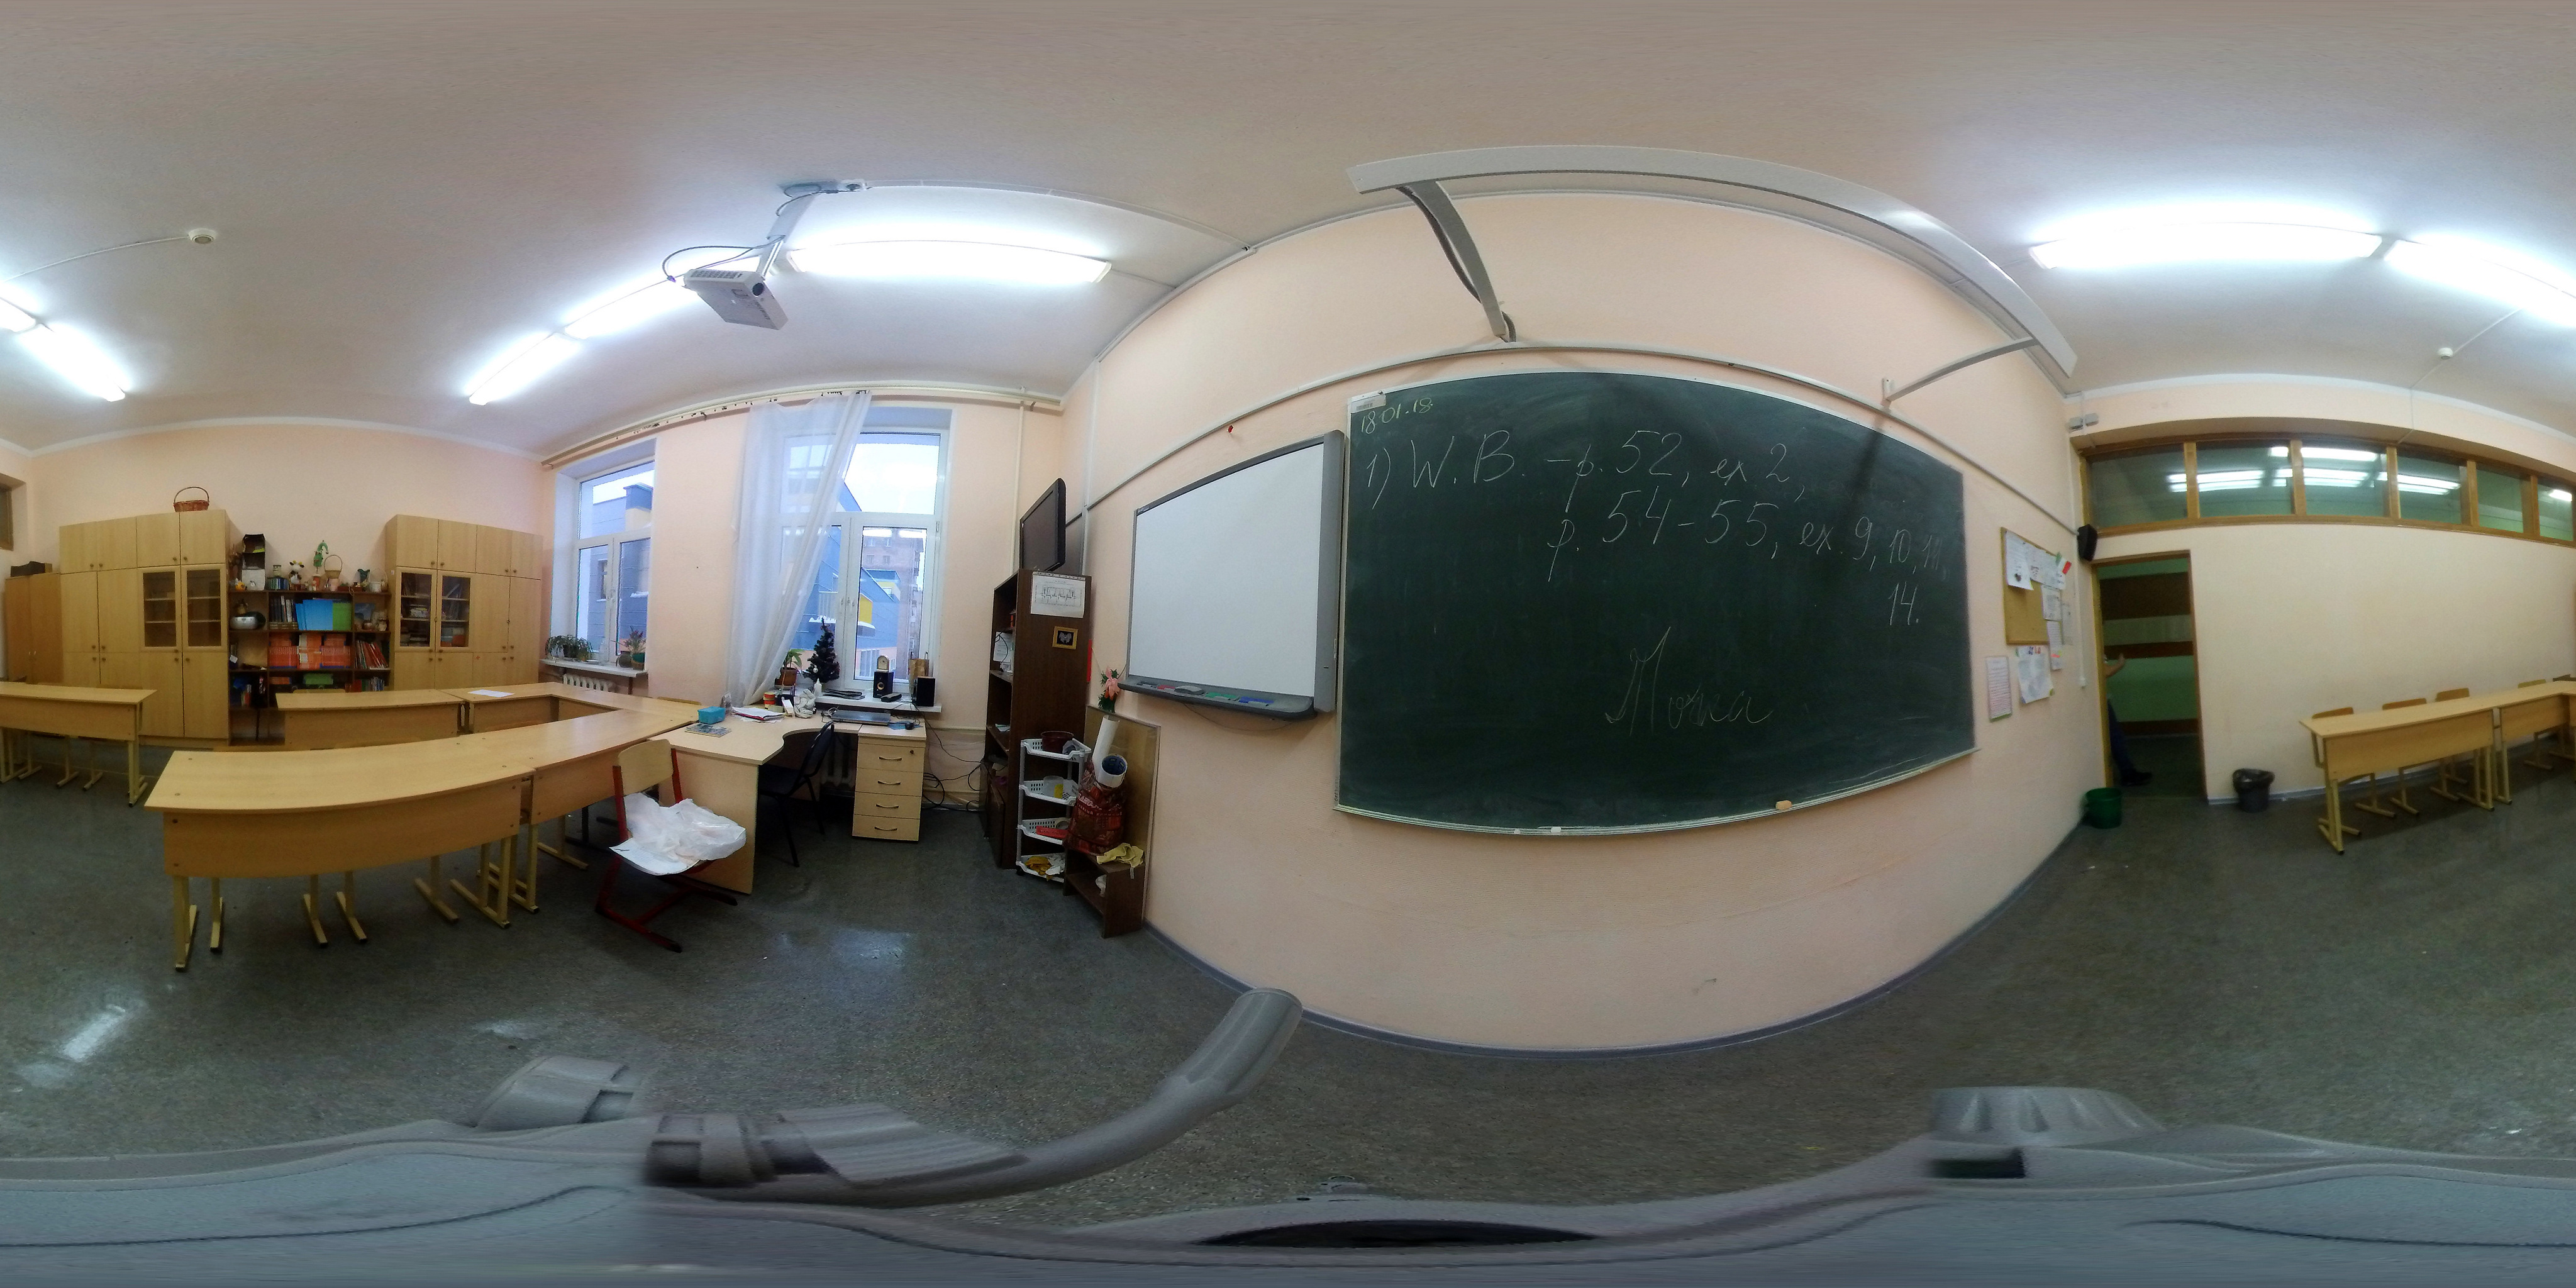 18.01.18
1) W.B. - p. 52, ex 2,
p. 54-55, ex. 9, 10, 11,
14.